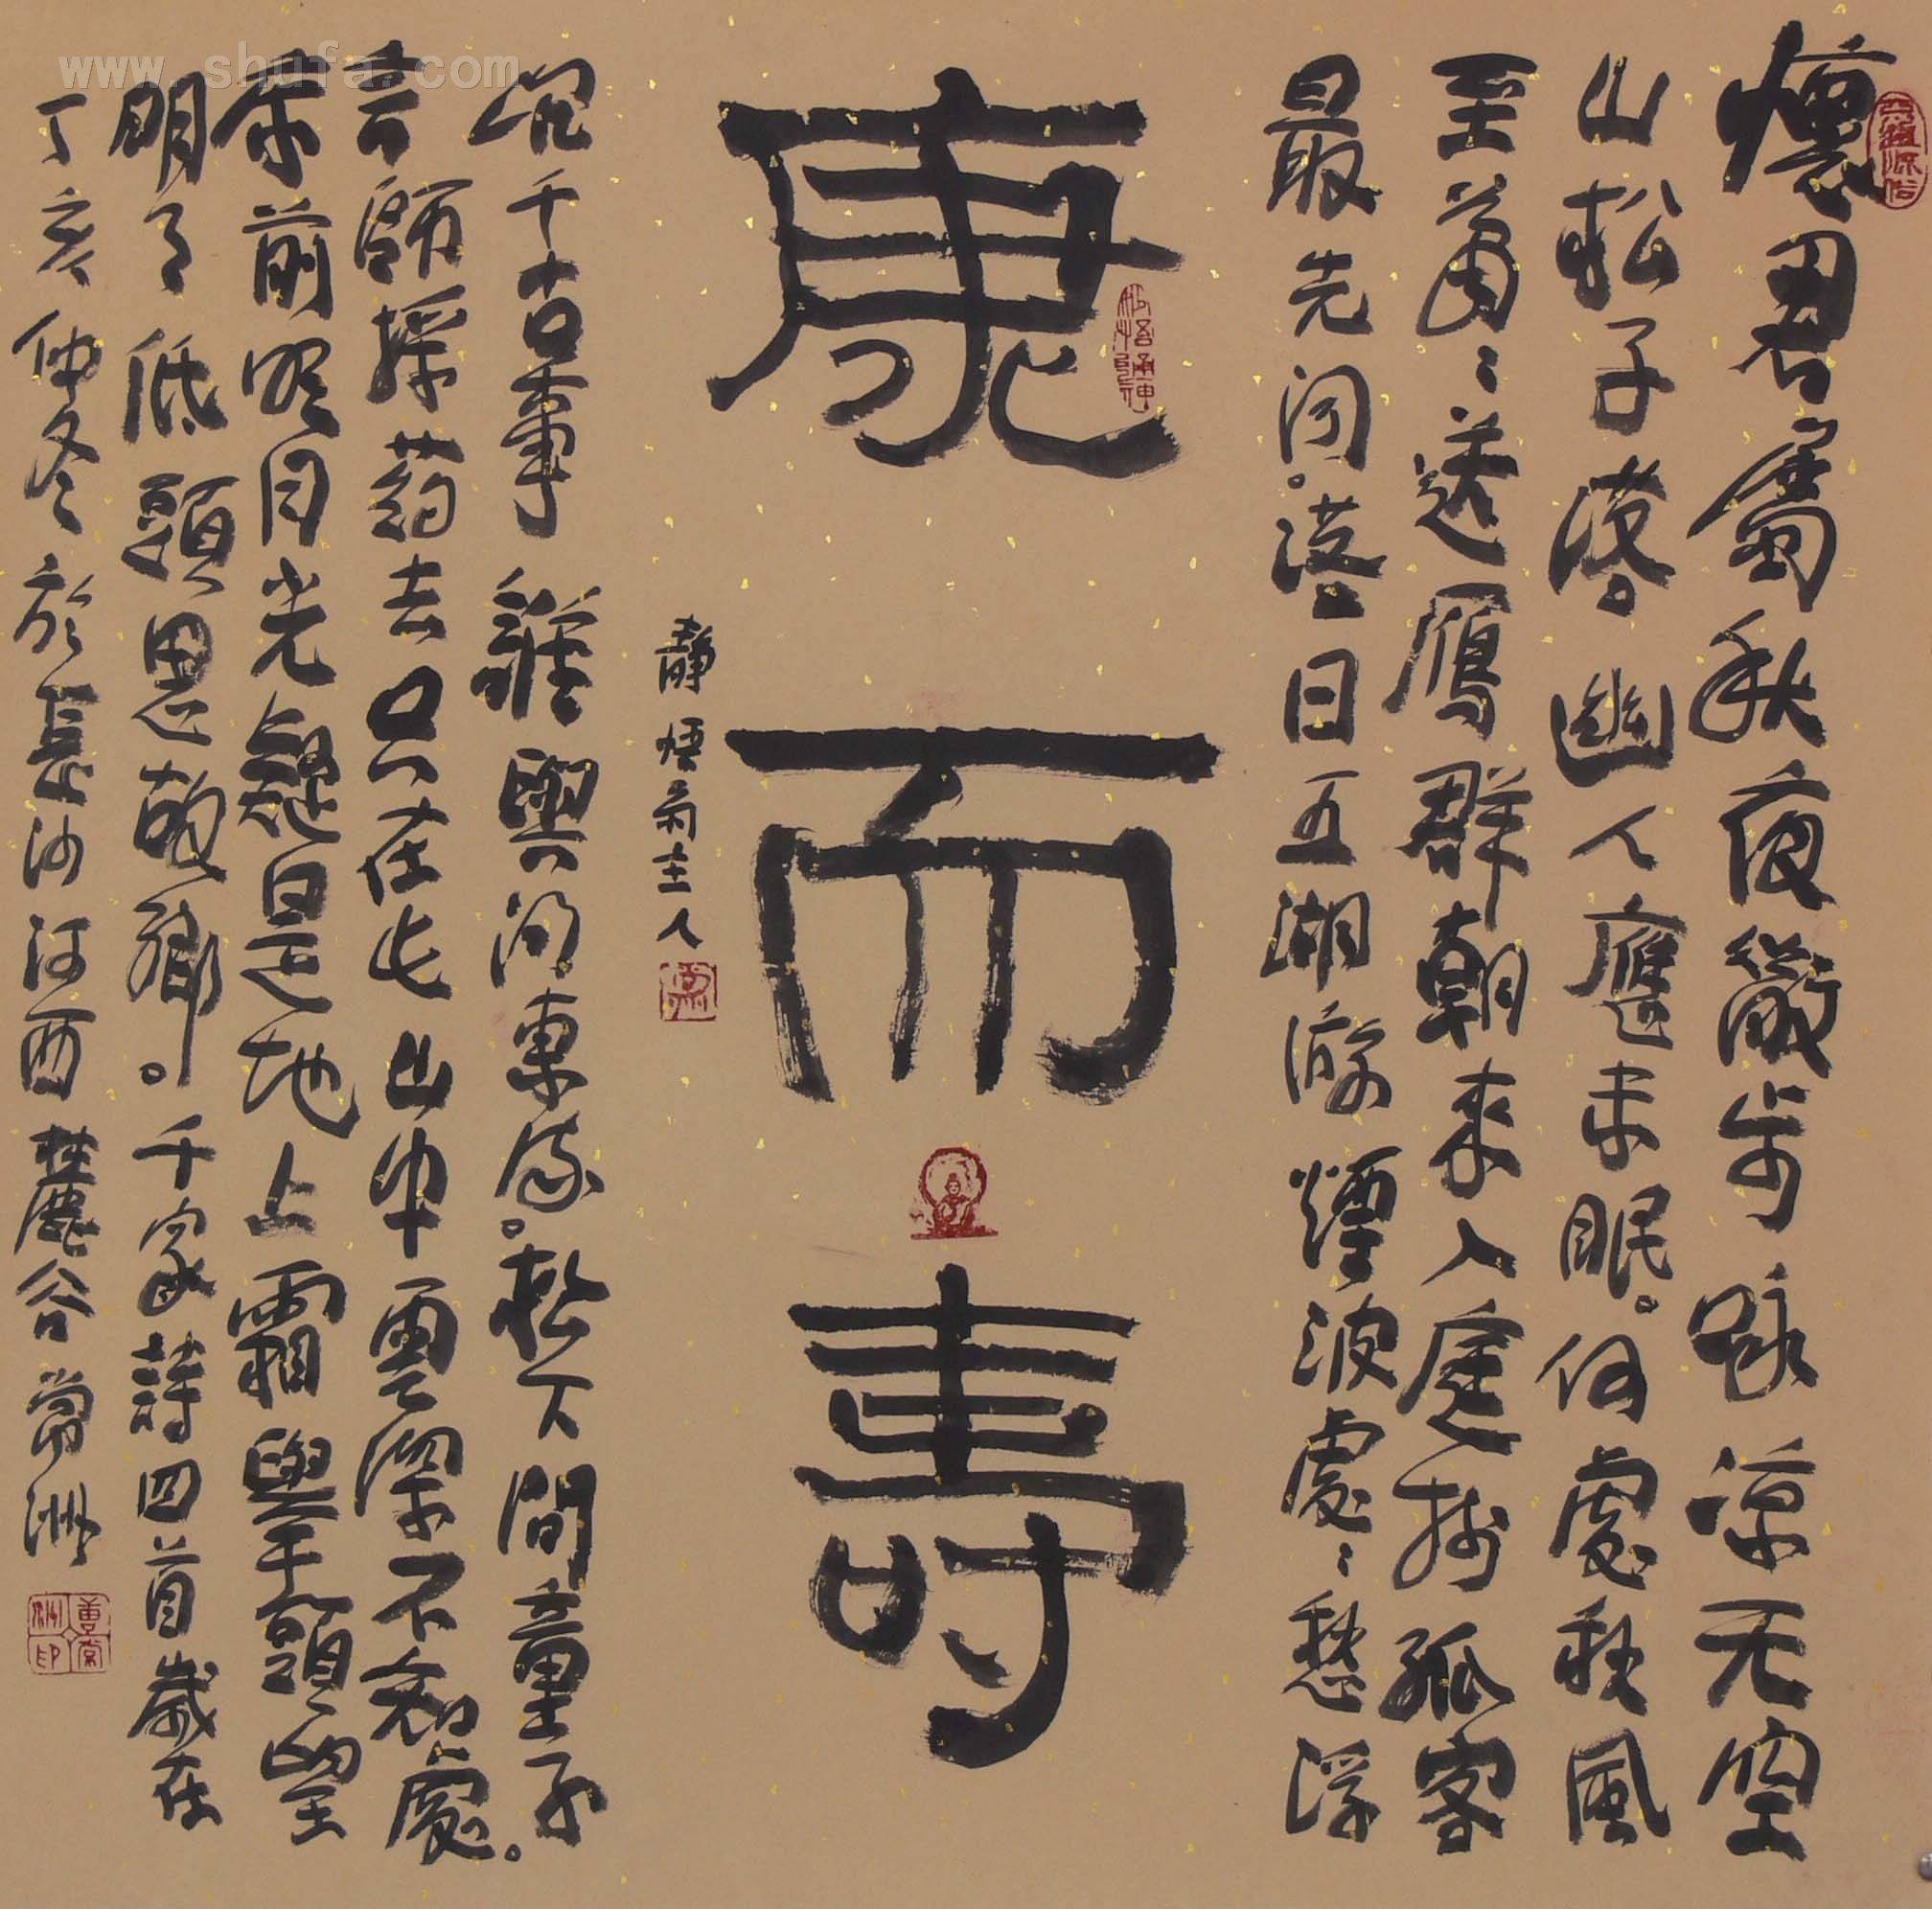 懷君屬秋夜散步咏涼天空
山松子落幽人應未眠何處秋風
至蕭〻送雁群朝來入庭樹孤客
最先聞落日五湖游煙波處〻愁浮
康而壽
靜悟齋主人
沉千古事誰與問東流松下問童子
言師採药去只在此山中雲深不知處
床前明月光疑是地上霜舉頭望
明月低頭思故鄉千家詩四首歲在
丁亥仲冬於長沙河西麓谷常洲
www.shufa.com